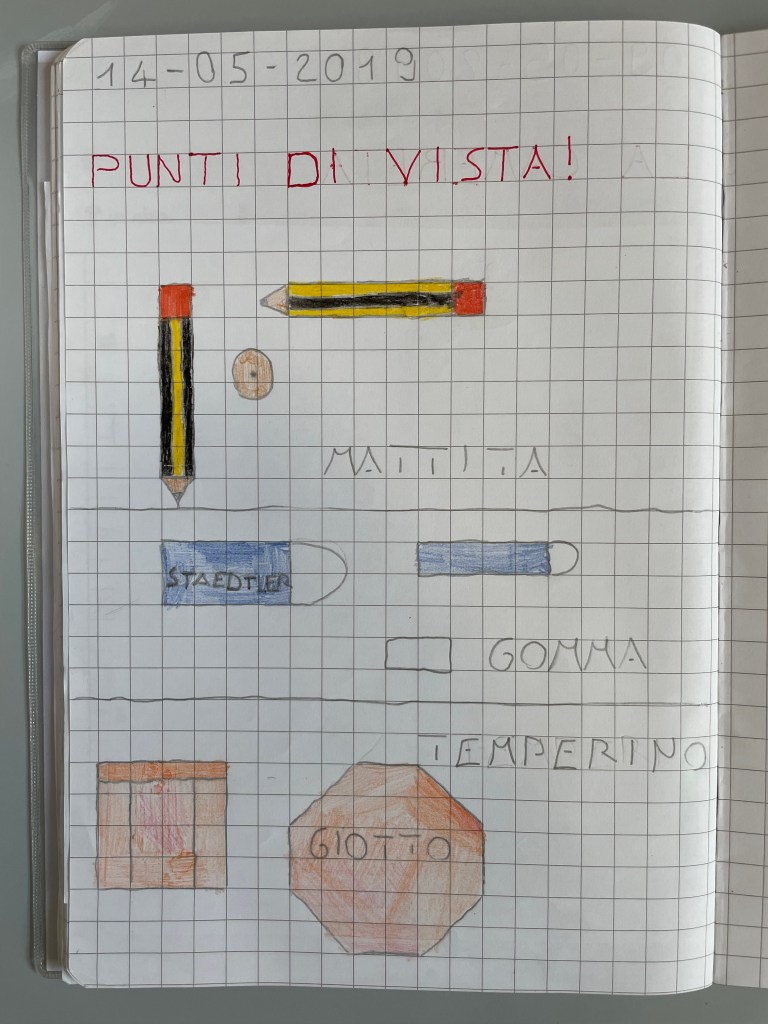 14-05-2019
PUNTI DI VISTA!
MATTITA
STAEDTLER
GOMMA
TEMPERINO
GIOTTO